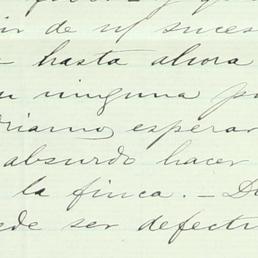 de su suces
hasta ahora
ninguna p
esperar
absurdo hacer
la finca. — D
ser defect